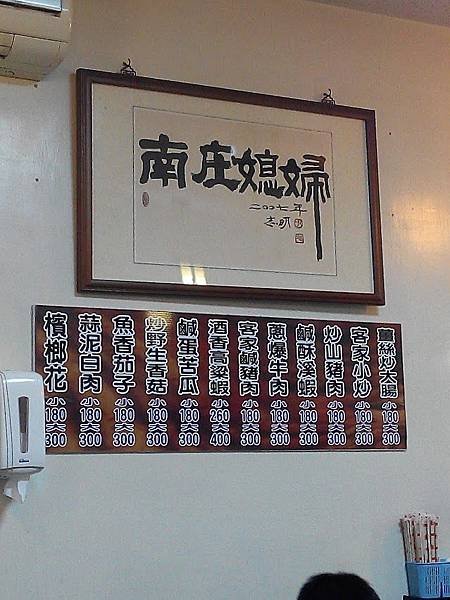 南庄媳婦
二〇〇七年
志明
薑絲炒大腸 小180 大300
客家小炒 小180 大300
炒山豬肉 小180 大300
鹹酥溪蝦 小180 大300
蔥爆牛肉 小180 大300
客家鹹豬肉 小180 大300
酒香高粱蝦 小260 大400
鹹蛋苦瓜 小180 大300
炒野生香菇 小180 大300
魚香茄子 小180 大300
蒜泥白肉 小180 大300
檳榔花 小180 大300